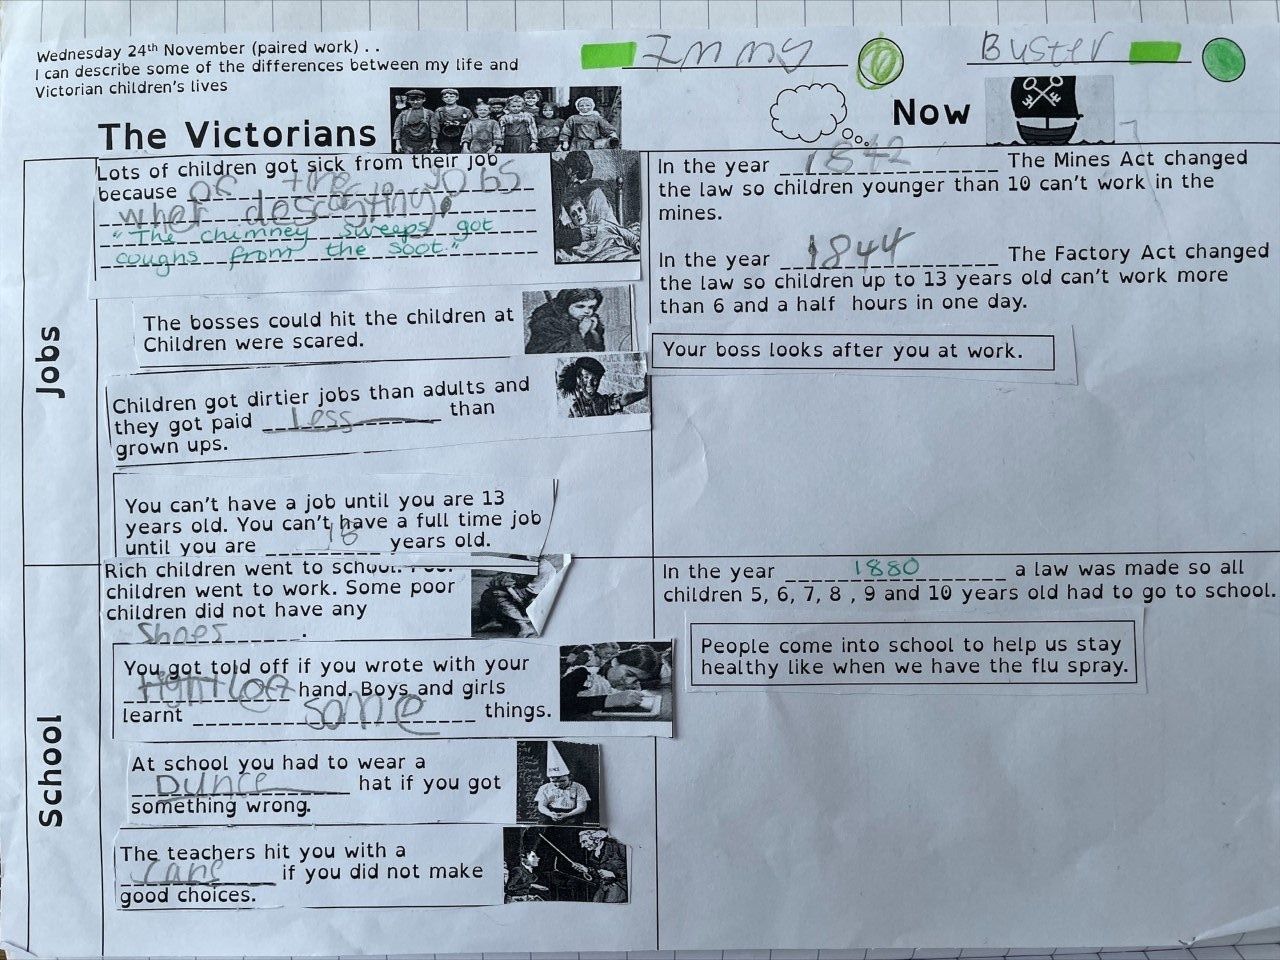 Wednesday 24th November (paired work) . .
I can describe some of the differences between my life and
Victorian children's lives
Immy
Buster
The Victorians
Now
Jobs
Lots of children got sick from their job
because of the jobs
wher
"The chimney sweeps got
coughs from the soot."
The bosses could hit the children at
Children were scared.
Children got dirtier jobs than adults and
they got paid Less than
grown ups.
You can't have a job until you are 13
years old. You can't have a full time job
until you are 18 years old.
In the year 1842 The Mines Act changed
the law so children younger than 10 can't work in the
mines.
In the year 1844 The Factory Act changed
the law so children up to 13 years old can't work more
than 6 and a half hours in one day.
Your boss looks after you at work.
School
Rich children went to school.
children went to work. Some poor
children did not have any
Shoes .
You got told off if you wrote with your
left hand. Boys and girls
learnt some things.
At school you had to wear a
Dunce hat if you got
something wrong.
The teachers hit you with a
cane if you did not make
good choices.
In the year 1880 a law was made so all
children 5, 6, 7, 8 , 9 and 10 years old had to go to school.
People come into school to help us stay
healthy like when we have the flu spray.